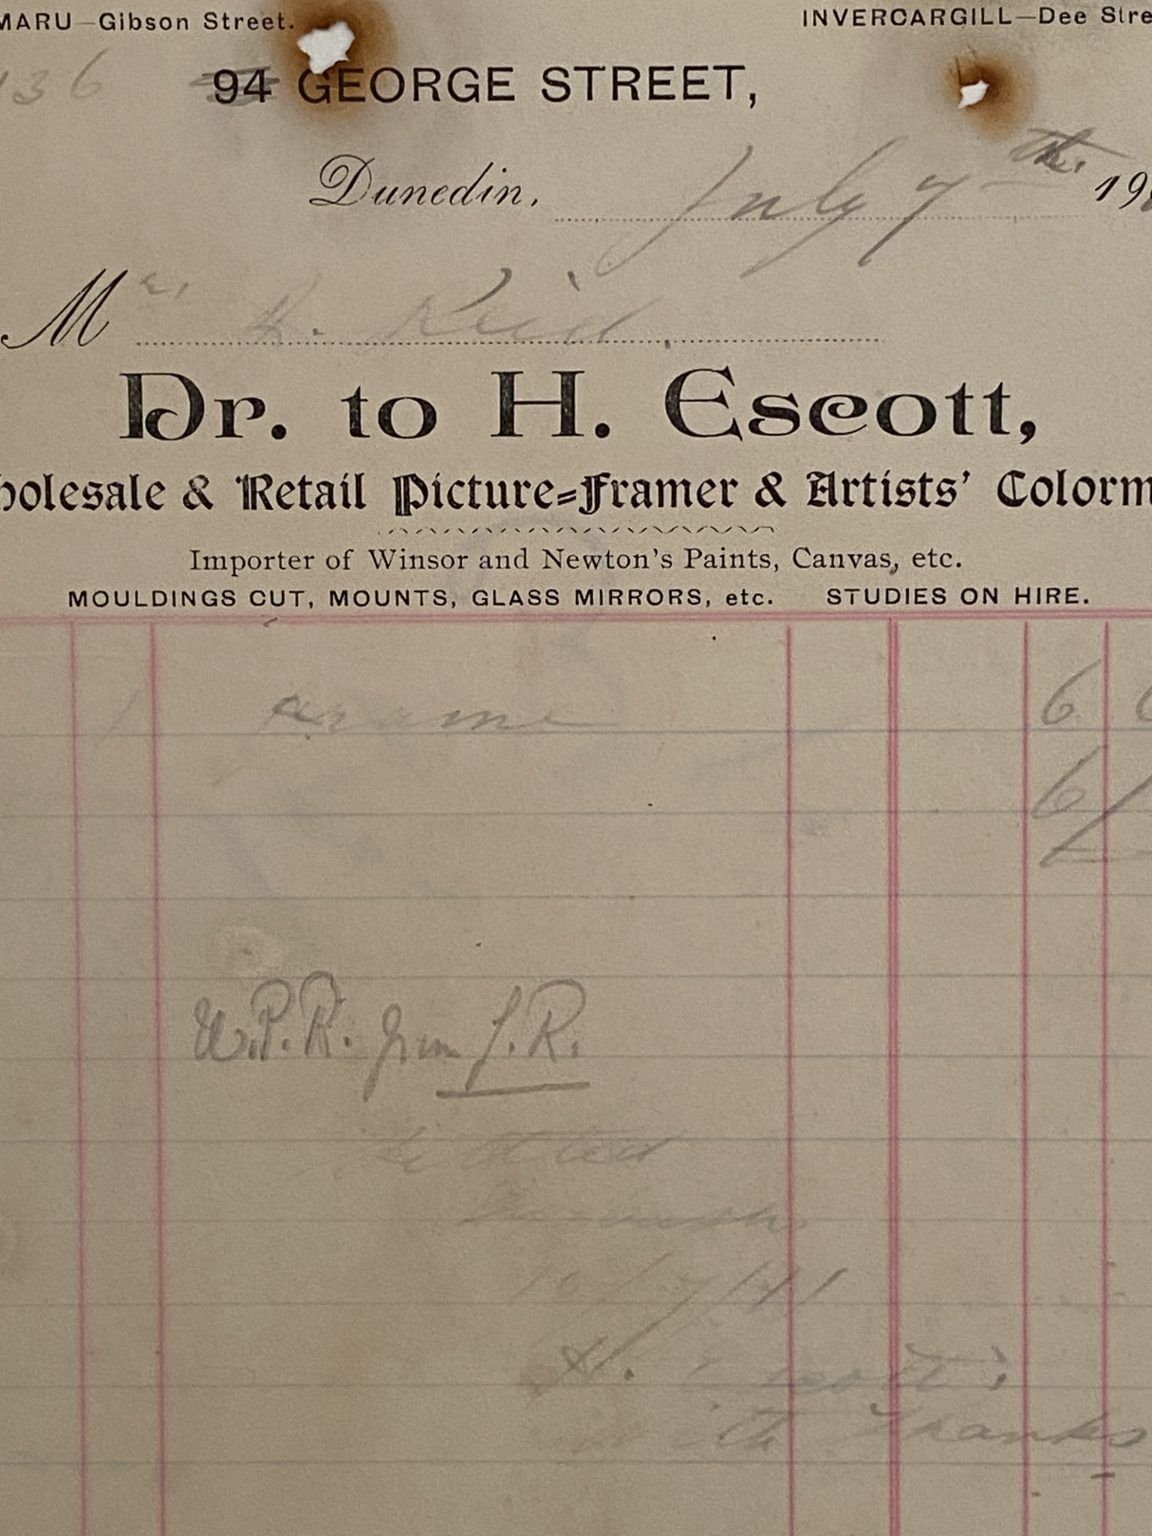 MARU—Gibson Street. INVERCARGILL—Dee Stre
136 94 GEORGE STREET,
Dunedin, July 7th. 19
Mr. H. Reid
Dr. to H. Escott,
holesale & Retail Picture-Framer & Artists' Colorm
Importer of Winsor and Newton's Paints, Canvas, etc.
MOULDINGS CUT, MOUNTS, GLASS MIRRORS, etc. STUDIES ON HIRE.
1 Frame 6
6/
W.P.R. from J.R.
H. Escott
With Thanks